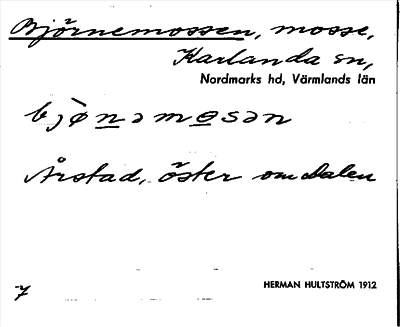 Björnemossen, mosse,
Karlanda sn,
Nordmarks hd, Värmlands län
bjø̀nəmosən
Årstad, öster om Dalen
7
HERMAN HULTSTRÖM 1912